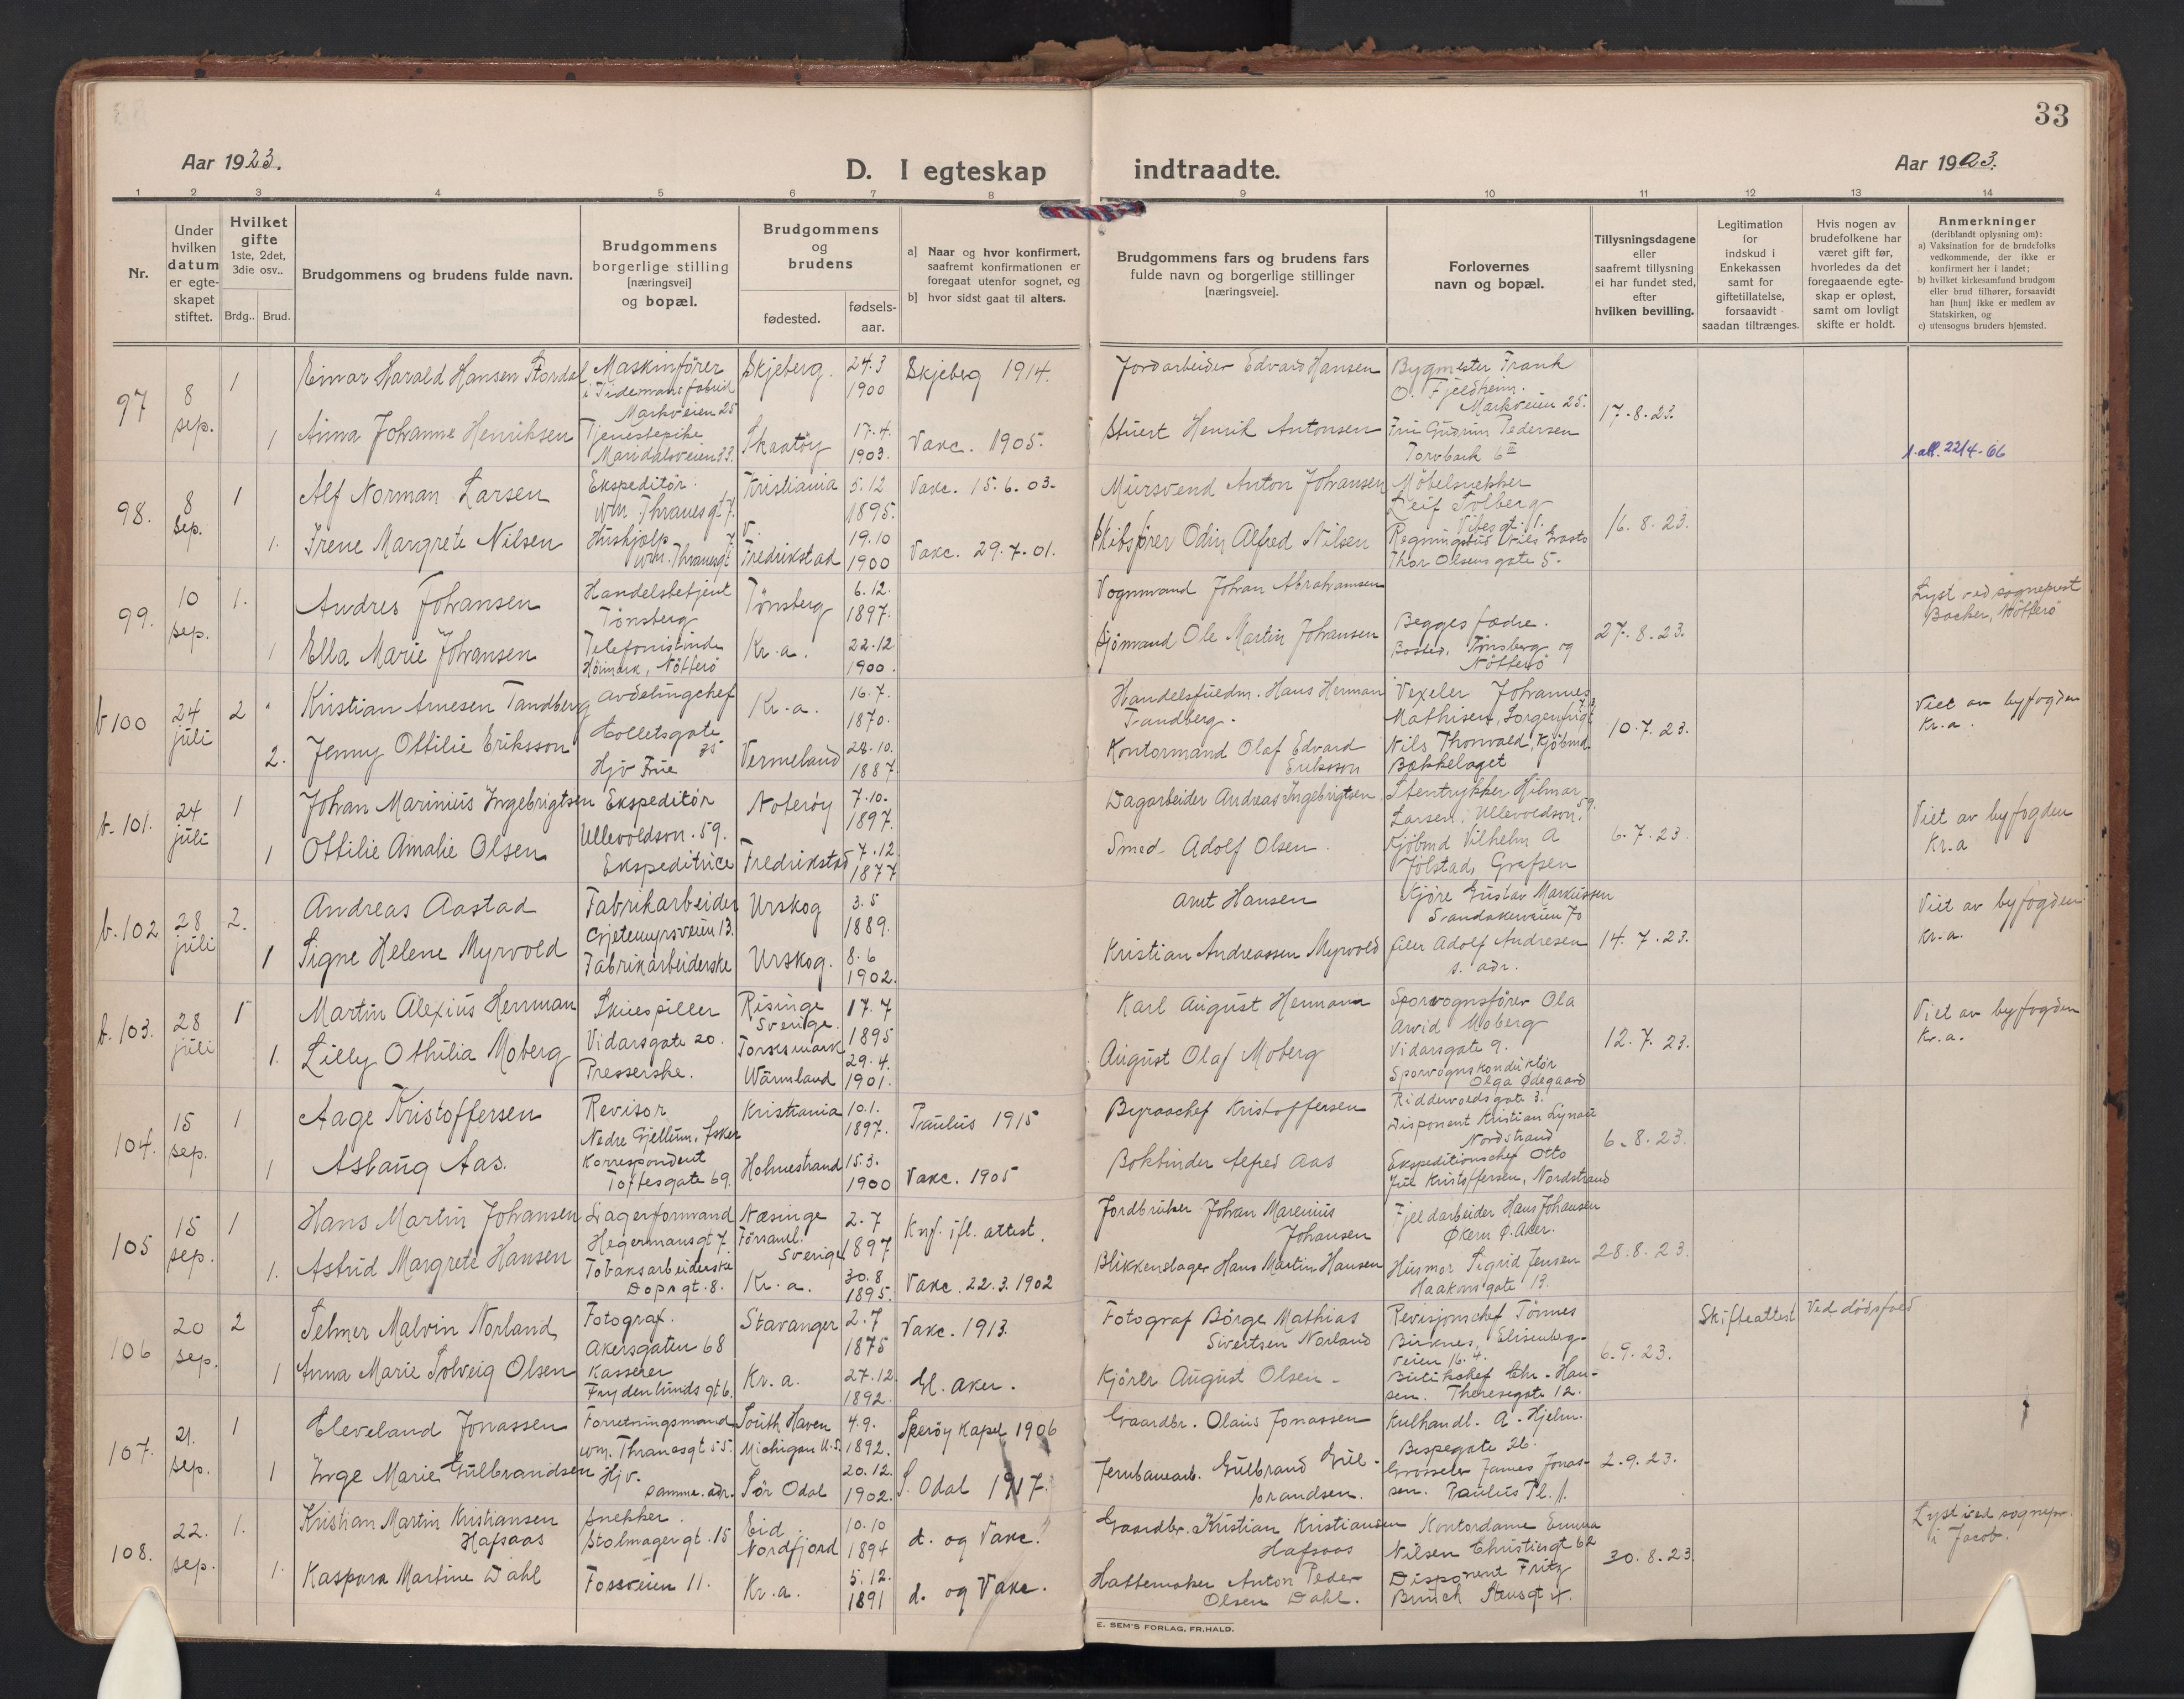 33
Aar 1923.
D. I egteskap indtraadte.
Aar 1923.
1 2 3 4 5 6 7 8 9 10 11 12 13 14
Nr.
Under
hvilken
datum
er egte-
skapet
stiftet.
Hvilket
gifte
1ste, 2det,
3die osv..
Brdg.. Brud.
Brudgommens og brudens fulde navn.
Brudgommens
borgerlige stilling
[næringsvei]
og bopæl.
Brudgommens
og
brudens
fødested.
fødsels-
aar.
a] Naar og hvor konfirmert,
saafremt konfirmationen er
foregaat utenfor sognet, og
b] hvor sidst gaat til alters.
Brudgommens fars og brudens fars
fulde navn og borgerlige stillinger
[næringsveie].
Forlovernes
navn og bopæl.
Tillysningsdagene
eller
saafremt tillysning
ei har fundet sted,
efter
hvilken bevilling.
Legitimation
for
indskud i
Enkekassen
samt for
giftetillatelse,
forsaavidt
saadan tiltrænges.
Hvis nogen av
brudefolkene har
været gift før,
hvorledes da det
foregaaende egte-
skap er opløst,
samt om lovligt
skifte er holdt.
Anmerkninger
(deriblandt oplysning om):
a) Vaksination for de brudefolks
vedkommende, der ikke er
konfirmert her i landet;
b) hvilket kirkesamfund brudgom
eller brud tilhører, forsaavidt
han [hun] ikke er medlem av
Statskirken, og
c) utensogns bruders hjemsted.
97 8 sep. 1 Einar Harald Hansen Stordal Maskinfører Skjeberg. 24.3 1900 Skjeberg 1914. Jordarbeider Edvard Hansen Bygmester Frank
i Tidemans fabrik O. Fjeldheim.
Markveien 25 Markveien 25. 17-8-23.
1 Anna Johanne Henriksen Tjenestepike Skaatøy 17.4. 1903. Vakc. 1905. Stuert Henrik Antonsen Fru Gudrun Pedersen
Maridalsveien 33. Torvbakk 6 II
22/4-66
98. 8 sep. 1 Alf Norman Larsen Ekspeditør. Kristiania 5.12 1895. Vakc. 15.6.03. Mursvend Anton Johansen Møbelsnekker
Wm. Thranes gt. 7. Leif Solberg
Vibes gt. 11. 16.8.23.
1. Irene Margrete Nilsen Hushjelp Fredrikstad 19.10 1900 Vakc. 29.7.01. Skibsfører Odin Alfred Nilsen
Wm. Thranesgt 7 Thor Olsens gate 5.
99. 10 sep. 1. Andres Johansen Handelsbetjent Tønsberg 6.12. 1897. Vognmand Johan Abrahamsen Lyst ved sogneprest
Tønsberg Backer, Nøtterø
1 Ella Marie Johansen Telefonistinde Kr.a. 22.12 1900. Sjømand Ole Martin Johansen Begges fædre. 27.8.23.
Høimark, Nøtterø Bosted. Tønsberg og
Nøtterø
b 100 24 juli 2 Kristian Arnesen Tandberg avdelingchef Kr.a. 16.7. 1870. Handelsfuldm. Hans Herman Vexeler Johannes Viet av byfogden
Colletsgate 35 Tandberg. Mathisen, Sorgenfrigt. 10.7.23. Kr.a.
2. Jenny Ottilie Eriksson Hjv Frue Vermeland 28.10. 1887. Kontormand Olaf Edvard Nils Thorvald, Kjøbmd.
Eriksson Bækkelaget
b. 101. 24 juli 1 Johan Marinius Ingebrigtsen Ekspeditør Noterøy 7.10. 1897. Dagarbeider Andreas Ingebrigtsen Stentrykker Hilmar Viet av byfogden
Ullevoldsvn. 59. Larsen, Ullevoldsvn. 59. Kr.a
1 Ottilie Amalie Olsen Ekspeditrice Fredrikstad 7.12. 1877 Smed Adolf Olsen. Kjøbmd Vilhelm A 6.7.23.
Jølstad, Grefsen
b. 102 28 juli 2. Andreas Aastad Fabrikarbeider Urskog 3.5 1889. Arnt Hansen Kjøre Gustav Markussen Viet av byfogden
Gjetemyrsveien 13. Sandakerveien 70 Kr.a.
1 Signe Helene Myrvold Fabrikarbeiderske Urskog. 8.6 1902. Kristian Andreassen Myrvold Adolf Andresen 14.7.23.
s. adr.
b. 103. 28 juli 1 Martin Alexius Herrman Skuespiller Risinge Sverige. 17.7 1895 Karl August Hermann Sporvognsfører Ola Viet av byfogden
Vidarsgate 20. Arvid Moberg Kr.a.
1. Lilly Othilia Moberg Presserske. Torsksmark Wärmland 29.4. 1901. August Olaf Moberg Vidarsgate 9. 12.7.23.
Sporvognskonduktør
Olga Ødegaard
104. 15 sep. 1 Aage Kristoffersen Revisor Kristiania 10.1. 1897. Paulus 1915 Byraachef Kristoffersen Riddervoldsgate 3.
Nedre Gjellum, Asker Disponent Kristian Lynau
Nordstrand 6.8.23.
1 Aslaug Aas. Korrespondent Holmestrand 15.3. 1900 Vakc. 1905 Bokbinder Alfred Aas Ekspeditionschef Otto
Toftesgate 69. Juul Kristoffersen, Nordstrand
105 15 sep. 1 Hans Martin Johansen Lagerformand Næsinge 2.7 1897 Knf. ifl. attest. Jordbruker Johan Marenius Fjeldarbeider Hans Johansen
Hegermansgt 7. Församl. Sverige Johansen Økern Ø. Aker.
1. Astrid Margrete Hansen Tobaksarbeiderske Kr.a. 30.8 1895. Vakc. 22.3.1902 Blikkenslager Hans Martin Hansen Husmor Sigrid Jensen 28.8.23.
Dopsgt. 8. Haakonsgate 13.
106 20 sep. 2 Selmer Malvin Norland Fotograf. Stavanger 2.7 1875 Vakc. 1913. Fotograf Børge Mathias Revisjonschef Tønnes Skifteattest Ved dødsfald
Akersgaten 68 Sivertsen Norland Birknes, Elisenberg-
veien 16.4. 6.9.23.
1 Anna Marie Solveig Olsen Kasserer Kr.a. 27.12. 1892. Gl. Aker. Kjører August Olsen. Butikchef Chr. Han-
Frydenlunds gt 6. sen. Theresegate 12.
107. 21. sep. 1 Cleveland Jonassen Forretningsmand South Haven 4.9. 1892. Sperøy Kapel 1906 Gaardbr. Olaus Jonassen Kulhandl. A. Hjelm.
Wm. Thranesgt 55. Michigan U.S. Bispegate 26.
1 Inge Marie Gulbrandsen Hjv. Sør Odal 20.12. 1902. S. Odal 1917. Jernbanearb. Gulbrand Gul- Grosserer James Jonas- 2.9.23.
samme adr. brandsen. sen. Paulus Pl. 1.
108. 22. sep. 1. Kristian Martin Kristiansen Snekker. Eid 10.10 1894 d. og Vakc. Gaardbr. Kristian Kristiansen Kontordame Emma Lyst ved sognepr.
Hafsaas Stolmagergt. 15 Nordfjord Hafsaas Nilsen Christiesgt 62 i Jacob.
1. Kaspara Martine Dahl Fossveien 11. Kr.a. 5.12. 1891 d. og Vakc. Hattemaker Anton Peder Disponent Fritz 30.8.23.
Olsen Dahl. Bruuch
E. SEM'S FORLAG, FR.HALD.